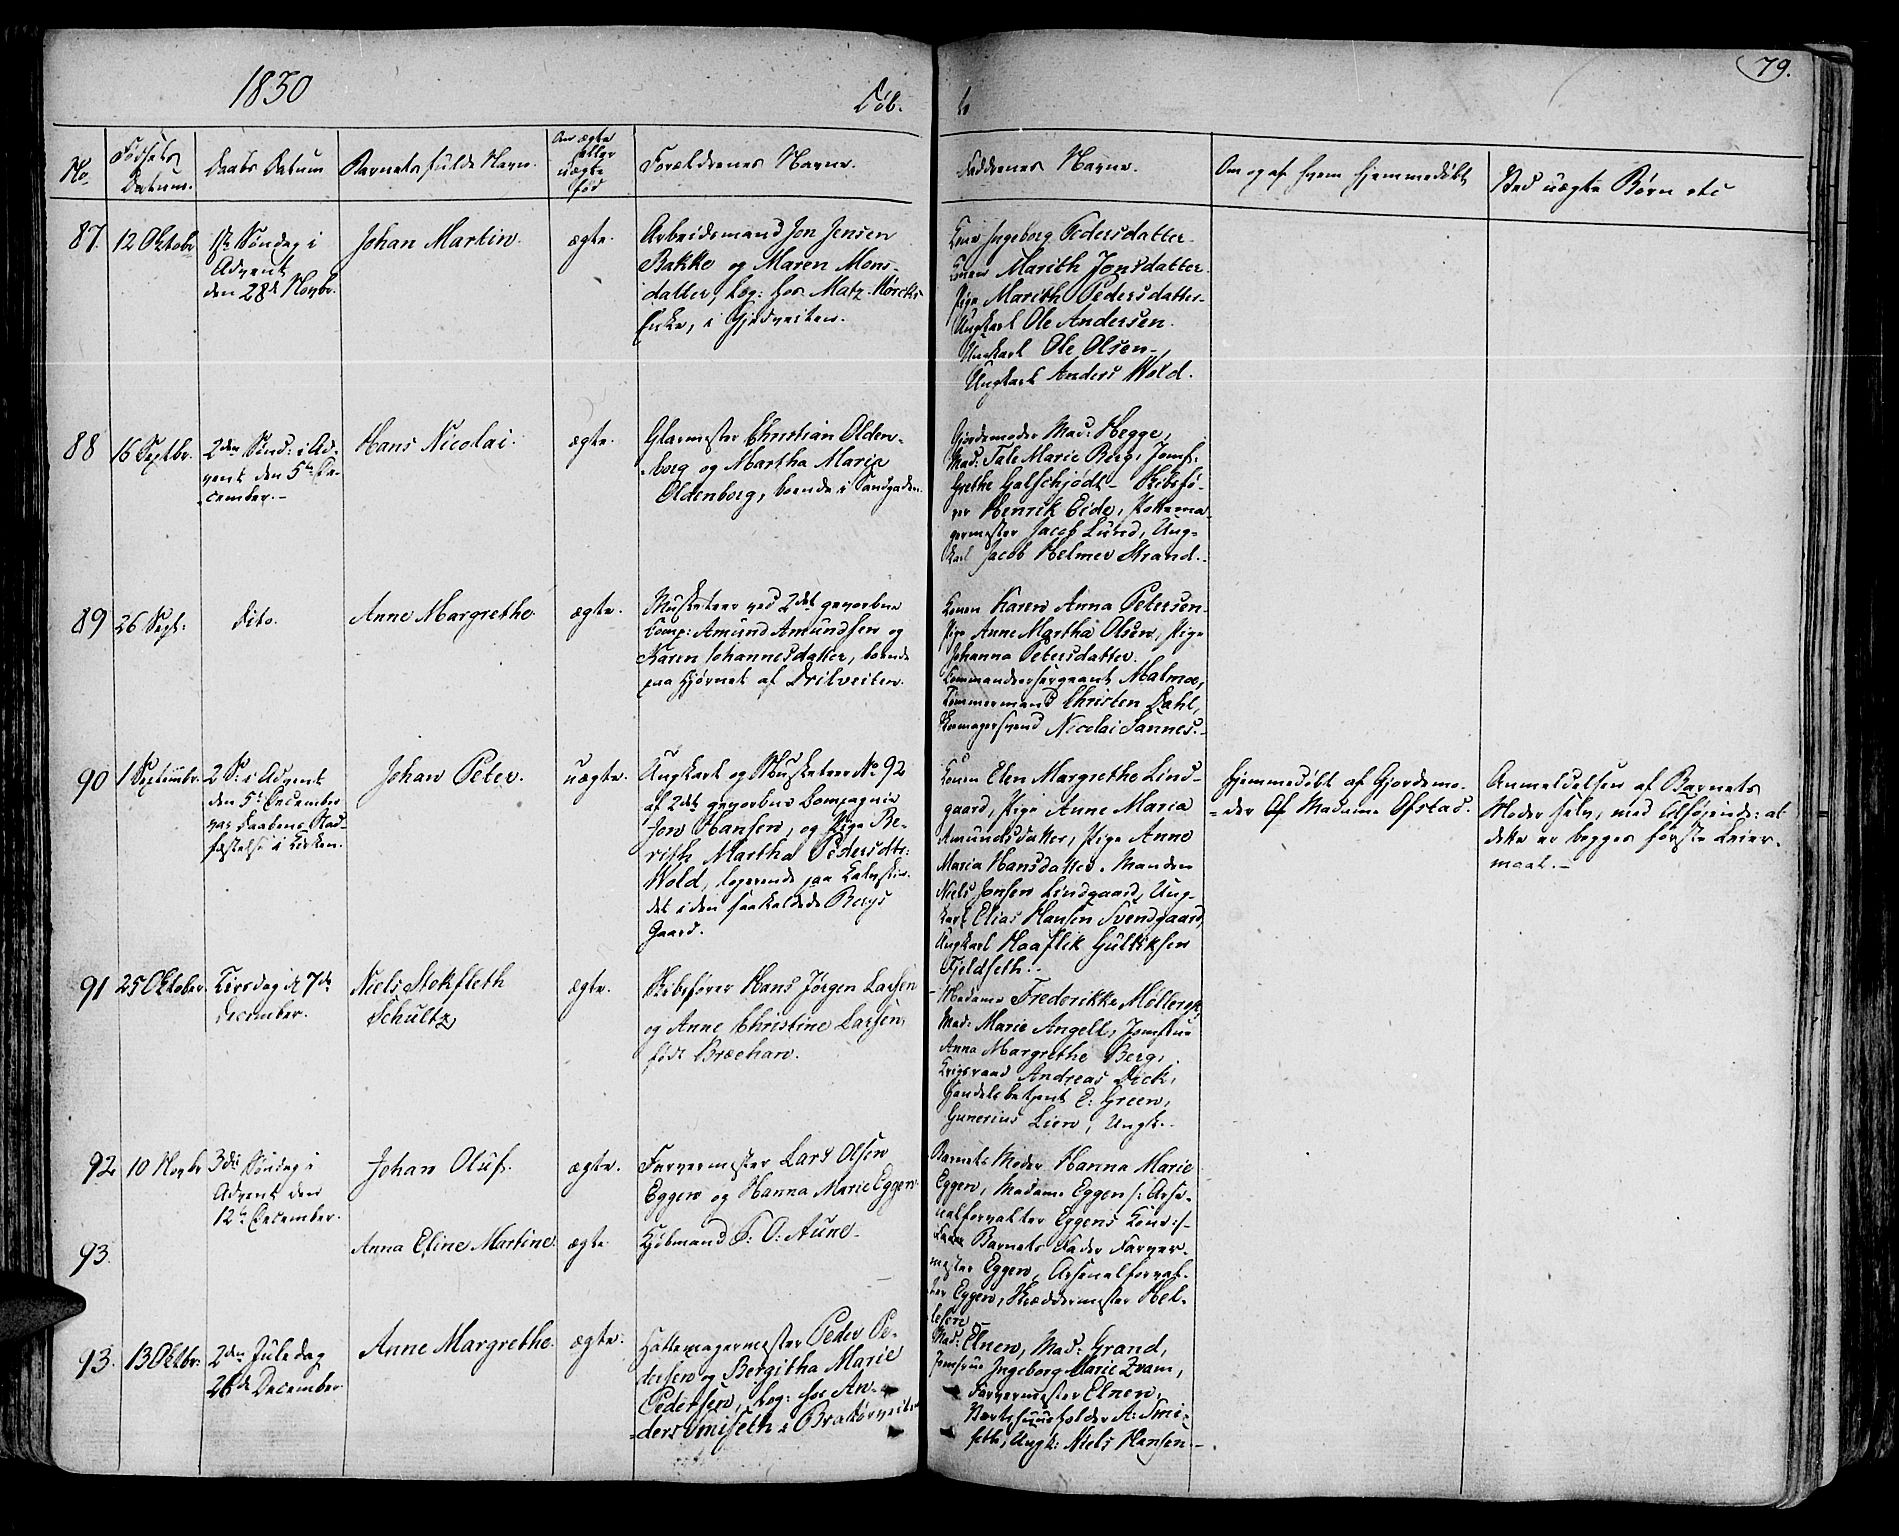 1830
Døb.
79.
No
Fødsels Datum.
Daabs Datum
Barnets fulde Navn.
Om ægte eller uægte fød
Forældrenes Navne.
Faddrenes Navne.
Om og af hvem hjemmedøbt
Ved uægte Børn etc
87.
12 Oktobr
1ste Søndag i
Advent
den 28de Novbr.
Johan Martin.
ægte.
Arbeidsmand Jon Jensen
Bakke og Maren Mons-
datter, log: hos Matz Mørchs
Enke, i Gjedveiten.
Kone Ingeborg Pedersdatter
Konen Marith Jonsdatter
Pige Marith Pedersdatter
Ungkarl Ole Andersen.
Ungkarl Ole Olsen
Ungkarl Anders Wold.
88
16 Septbr.
2den Sønd: i Ad-
vent den 5te De-
cember.
Hans Nicolai.
ægte.
Glarmester Christian Olden-
borg og Martha Maria
Oldenborg, boende i Sandgaden
Gjordemoder Mad: Hegge,
Mad: Tale Marie Berg, Jomf:
Grethe Galschjødt - Skibsfø-
rer Henrik Eide, Pottema-
germester Jacob Lund, Ung-
karl Jacob Helmer Strand.
89
26 Sept:
dito.
Anne Margrethe.
ægte.
Musketeer ved 2det gevorbne
Comp: Amund Amundsen og
Karen Johannesdatter, boende
paa Hjørnet af Dritveiten.
Konen Karen Anna Petersen
Pige Anne Martha Olsen, Pige
Johanna Petersdatter.
Commandeersergeant Malmoe,
Tømmermand Christen Dahl,
Skomagersvend Nicolai Sannes.
90
1 Septembr.
2 S: i Advent
den 5te December
var Daabens Stad-
fæstelse i Kirken.
Johan Peter.
uægte.
Ungkarl og Musketeer No 92
af 2det gevorbne Compagnie
Jon Hansen, og Pige Be-
rith Martha Pedersdtr:
Wold, logerende paa Kalvskin-
det i den saakaldede Bergs
Gaard.
Konen Elen Margrethe Lind-
gaard, Pige Anne Maria
Amundsdatter, Pige Anne
Maria Hansdatter. Manden
Niels Jonsen Lindgaard, Ung-
karl Elias Hansen Svendgaard,
Ungkarl Haaflik Gulliksen
Fjeldseth.
Hjemmedøbt af Gjordemo-
der Madame Ofstad.
Anmeldelsen af Barnets
Moder selv, med Tilføjende: at
dette er begges første Leier-
maal.
91
25 Oktober.
Tirsdag d 7de
December.
Niels Stokfleth
Schultz
ægte.
Skibsfører Hans Jørgen Larsen
og Anne Christine Larsen,
født Bræchan.
Madame Frederikke Møllerop,
Mad: Marie Angell, Jomfrue
Anna Margrethe Berg,
Krigsraad Andreas Dick,
Handelsbetjent E: Green,
Gunerius Lien, Ungk.
92
10 Novbr
3die Søndag i
Advent den
12te December.
Johan Oluf.
ægte.
Farvermester Lars Olsen
Eggen og Hanna Marie Eggen
Barnets Moder Hanna Marie
Eggen, Madame Eggen /: Arse-
nalforvalter Eggens Kone:/
Barnets Fader Farver-
mester Eggen, Arsenalforval-
ter Eggen, Skræddermester Hel-
93.
Anna Eline Martine
ægte
Kjøbmand O: Aune.
93.
13 Oktbr:
2den Juledag
26de December
Anne Margrethe.
ægte.
Hattemagermester Peder Pe-
dersen og Bergitha Marie
Pedersen, log: hos An-
ders Smiseth i Bratørveiten
Mad: Elnen, Mad: Grand,
Jomfrue Ingeborg Marie Zvam,
Farvermester Elnen,
Vertshuusholder A: Smi-
seth, Ungk: Niels Hansen.